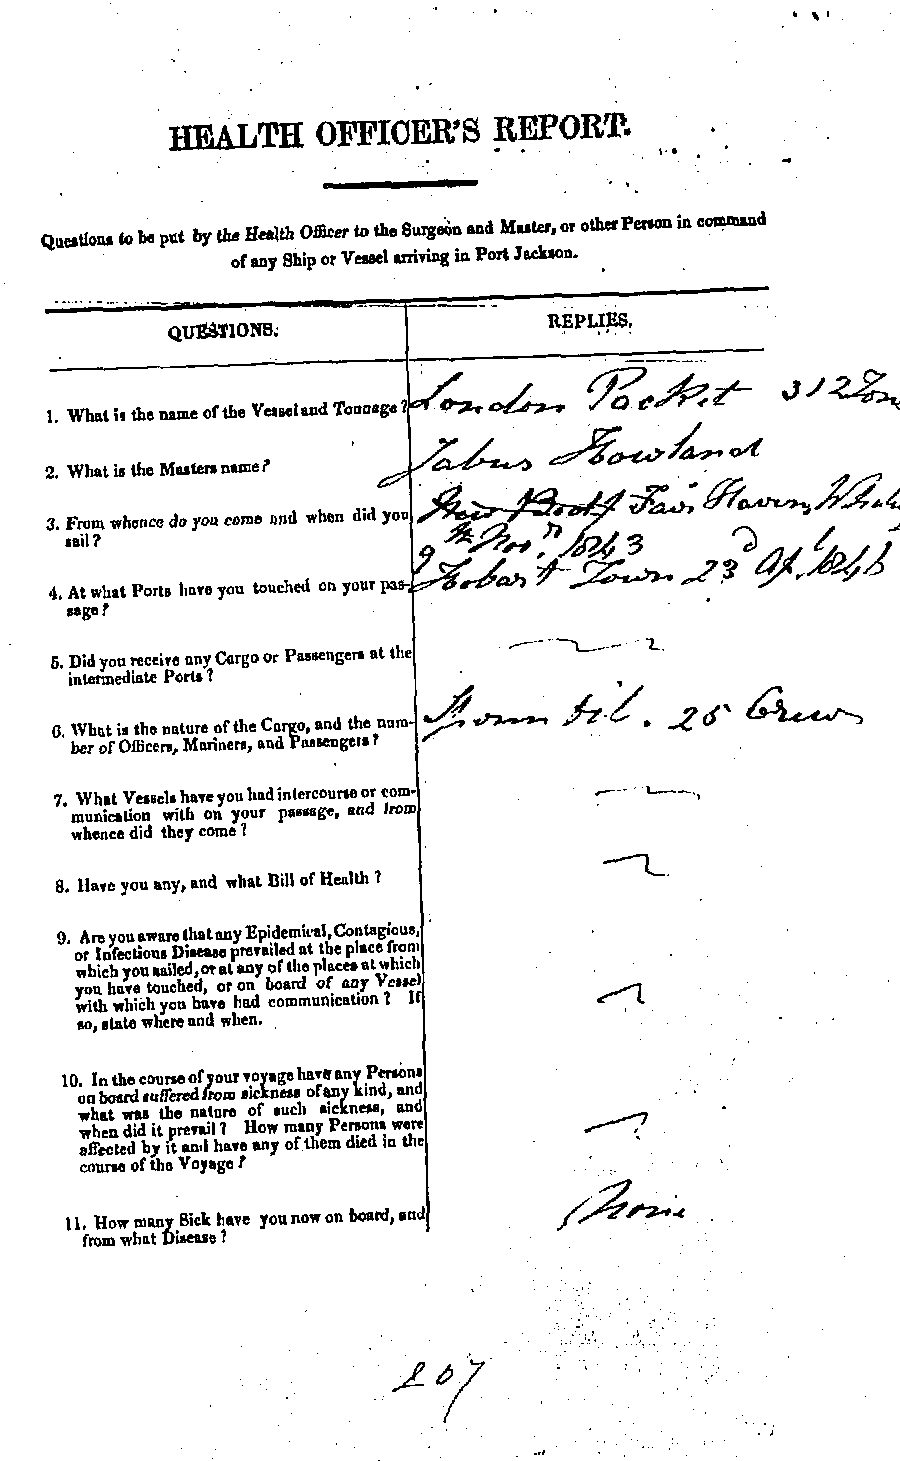 HEALTH OFFICER'S REPORT.
Questions to be put by the Health Officer to the Surgeon and Master, or other Person in command
of any Ship or Vessel arriving in Port Jackson.
QUESTIONS.
REPLIES.
1. What is the name of the Vessel and Tonnage?
London Packet 312 Ton
2. What is the Masters name?
Jabus Howland
3. From whence do you come and when did you
sail?
Fair Haven, Whal
9th Novr. 1843
4. At what Ports have you touched on your pas-
sage?
Hobart Town 23d Apl. 184
5. Did you receive any Cargo or Passengers at the
intermediate Ports?
6. What is the nature of the Cargo, and the num-
ber of Officers, Mariners, and Passengers?
Sperm Oil. 25 Crew
7. What Vessels have you had intercourse or com-
munication with on your passage, and from
whence did they come?
8. Have you any, and what Bill of Health?
9. Are you aware that any Epidemical, Contagious,
or Infectious Disease prevailed at the place from
which you sailed, or at any of the places at which
you have touched, or on board of any Vessel
with which you have had communication? If
so, state where and when.
10. In the course of your voyage have any Persons
on board suffered from sickness of any kind, and
what was the nature of such sickness, and
when did it prevail? How many Persons were
affected by it and have any of them died in the
course of the Voyage?
11. How many Sick have you now on board, and
from what Disease?
None
207